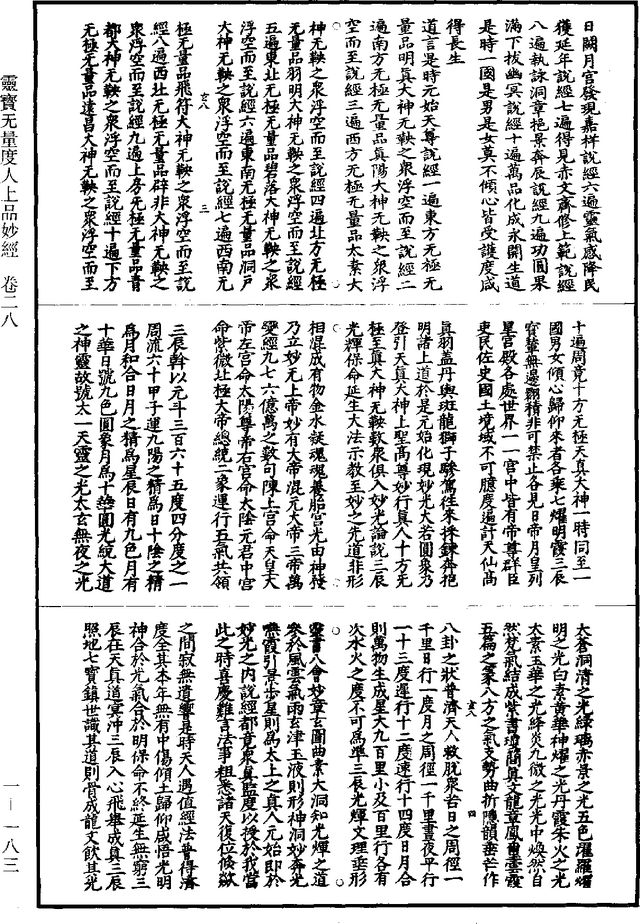 日闕月宫發現嘉祥說經六遍靈氣感降民
獲延年說經七遍得見赤文齋修上範說經
八遍執詠洞章挹景奔辰說經九遍功圓果
滿下拔幽冥說經十遍萬品化成永開生道
是時一國是男是女莫不傾心皆受護度咸
得長生
道言是時元始天尊說經一遍東方無極无
量品明真大神无鞅之衆浮空而至說經二
遍南方无極无量品真陽大神无鞅之衆浮
空而至說經三遍西方无極无量品太素大
神无鞅之衆浮空而至說經四遍北方无極
无量品羽明大神无鞅之衆浮空而至說經
五遍東北无極无量品碧落大神无鞅之衆
浮空而至說經六遍東南无極无量品洞戶
大神无鞅之衆浮空而至說經七遍西南无
極无量品飛符大神无鞅之衆浮空而至說
經八遍西北无極无量品辟非大神无鞅之
衆浮空而至說經九遍上方无極无量品青
都大神无鞅之衆浮空而至說經十遍下方
无極无量品遠昌大神无鞅之衆浮空而至
十遍周竟十方无極天真大神一時同至一
國男女傾心歸仰來者各乘七耀明霞三辰
寶輦無邊翱積非可禁止各見日帝月皇列
星宫殿各處世界一一宫中皆有帝尊群臣
吏民佐史國土境域不可臆度遍計天仙高
真羽盖丹輿斑龍獅子驂駕往来採鍊奔挹
明諸上道於是元始化現妙光大若圓象乃
登引天真大神上聖高尊妙行真人十方无
極至真大神无鞅數衆俱入妙光論說三辰
光輝保命延生大法示教至妙之先道非形
相混成有物金水誕魂魂養胎宫光由神授
乃立妙无上帝妙有大帝混元大帝三帝萬
變經九七六億萬之數句陳上宫命天皇大
帝左宫命太陽尊帝右宫命太陰元君中宫
命紫微北極大帝總統二象運行五氣共領
三辰斡以元斗三百六十五度四分度之一
周流六十甲子運九陽之精為日十陰之精
為月和合日月之精為星辰日有九色月有
十華日號九色圓象月為十華圓光統大道
之神靈故號太一天靈之光太玄無夜之光
太蒼洞清之光綠瑀赤景之光五色濯羅曜
明之光白素黃華神耀之光丹霞朱火之光
太素玉華之光絳炎九微之光光中煥然自
然梵氣結成紫書瓊簡真文龍章鳳
五篇之象八方之氣支勢曲折隱韻垂芒作
八卦之狀普濟天人救脫衆苦日之周徑一
千里日行一度月之周徑一千里晝夜平行
一十三度遲行十二度速行十四度日月合
則萬物生成星大九百里小及百里行各有
次水火之度不可為準三辰光輝文理垂形
靈書八會妙章玄圖曲素大洞知光輝之道
衆於風雲氣雨玄津玉液則形神洞妙奔光
嚥霞引景步星則為太上之真人元始即於
妙光之内說經都竟衆真監度以授於我當
此之時喜慶難言法事粗悉諸天復位倏欻
之間寂無遺響是時天人遇值經法普得濟
度全其本年無有中傷傾土歸仰咸悟光明
神合於光氣合於明保命不終延生無窮三
辰在天真道冥沖三辰入心飛舉成真三辰
照地七寶鎮世識其道則骨成龍文飲其光
靈寶无量度人上品妙經 卷二八
一—一八三